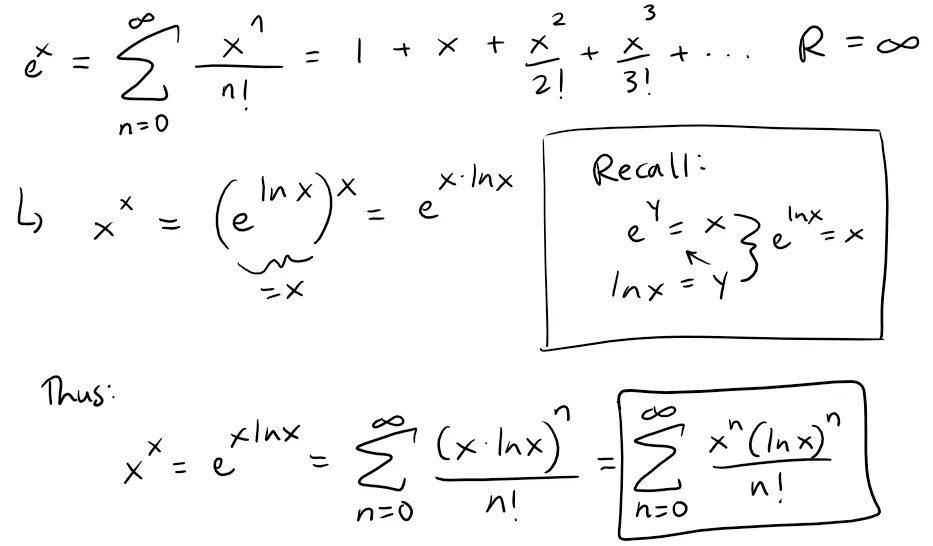 e^x = ∑_{n=0}^{∞} x^n/n! = 1 + x + x^2/2! + x^3/3! + ... R = ∞
↳ x^x = (e^{ln x})^x = e^{x·lnx}
= x
Recall:
e^y = x
lnx = y
e^{lnx} = x
Thus:
x^x = e^{xlnx} = ∑_{n=0}^{∞} (x·lnx)^n/n! = ∑_{n=0}^{∞} x^n(lnx)^n/n!